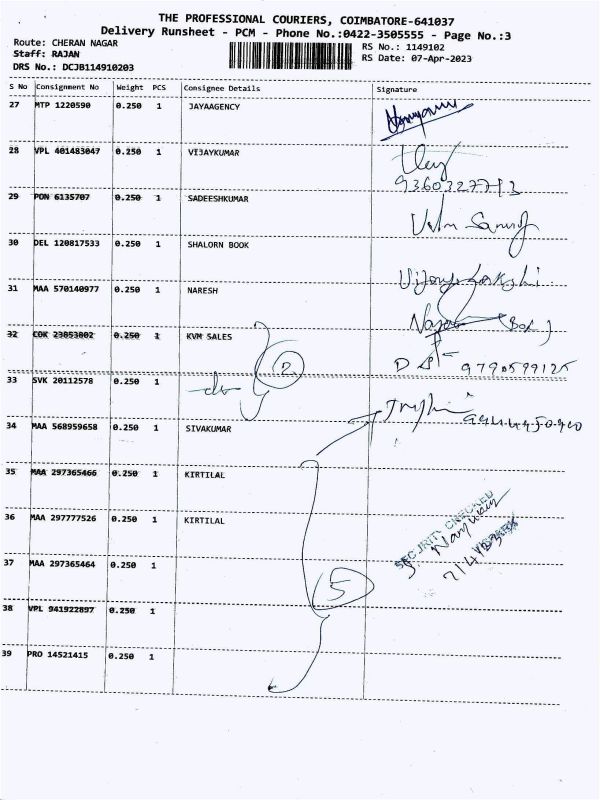 THE PROFESSIONAL COURIERS, COIMBATORE-641037
Delivery Runsheet - PCM - Phone No.:0422-3505555 - Page No.:3
Route: CHERAN NAGAR
RS No.: 1149102
Staff: RAJAN
RS Date: 07-Apr-2023
DRS No.: DCJB114910203
S No Consignment No Weight PCS Consignee Details Signature
27 MTP 1220590 0.250 1 JAYAAGENCY
28 VPL 401483047 0.250 1 VIJAYKUMAR
29 PON 6135707 0.250 1 SADEESHKUMAR
30 DEL 120817533 0.250 1 SHALORN BOOK
31 MAA 570140977 0.250 1 NARESH
32 COK 23853802 0.250 1 KVM SALES
2
33 SVK 20112578 0.250 1
34 MAA 568959658 0.250 1 SIVAKUMAR
35 MAA 297365466 0.250 1 KIRTILAL
36 MAA 297777526 0.250 1 KIRTILAL
SECURITY CHECKED
37 MAA 297365464 0.250 1
5
38 VPL 941922897 0.250 1
39 PRO 14521415 0.250 1